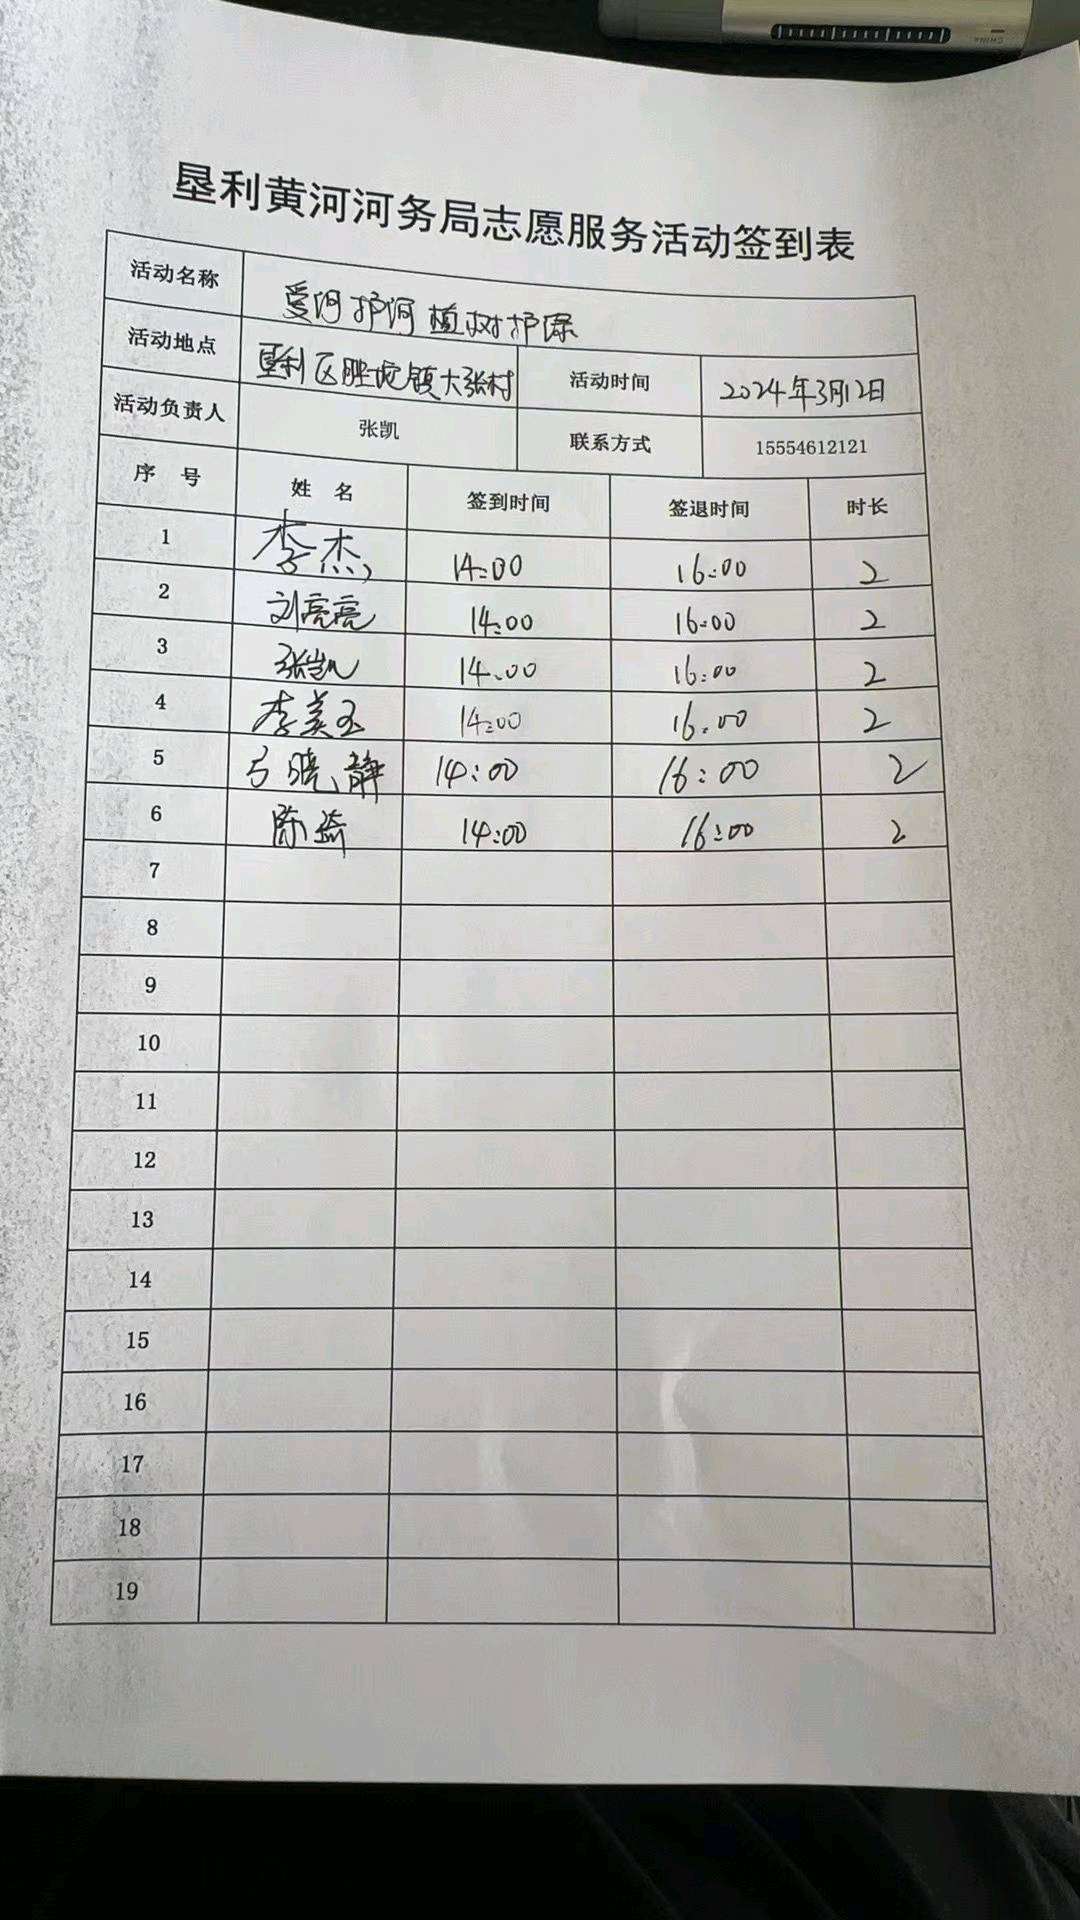 垦利黄河河务局志愿服务活动签到表
活动名称 爱河护河 植树护绿
活动地点 垦利区胜坨镇大张村 活动时间 2024年3月12日
活动负责人 张凯 联系方式 15554612121
序 号 姓 名 签到时间 签退时间 时长
1 李杰 14:00 16:00 2
2 刘亮亮 14:00 16:00 2
3 张凯 14:00 16:00 2
4 李美玉 14:00 16:00 2
5 弓晓静 14:00 16:00 2
6 陈琦 14:00 16:00 2
7
8
9
10
11
12
13
14
15
16
17
18
19